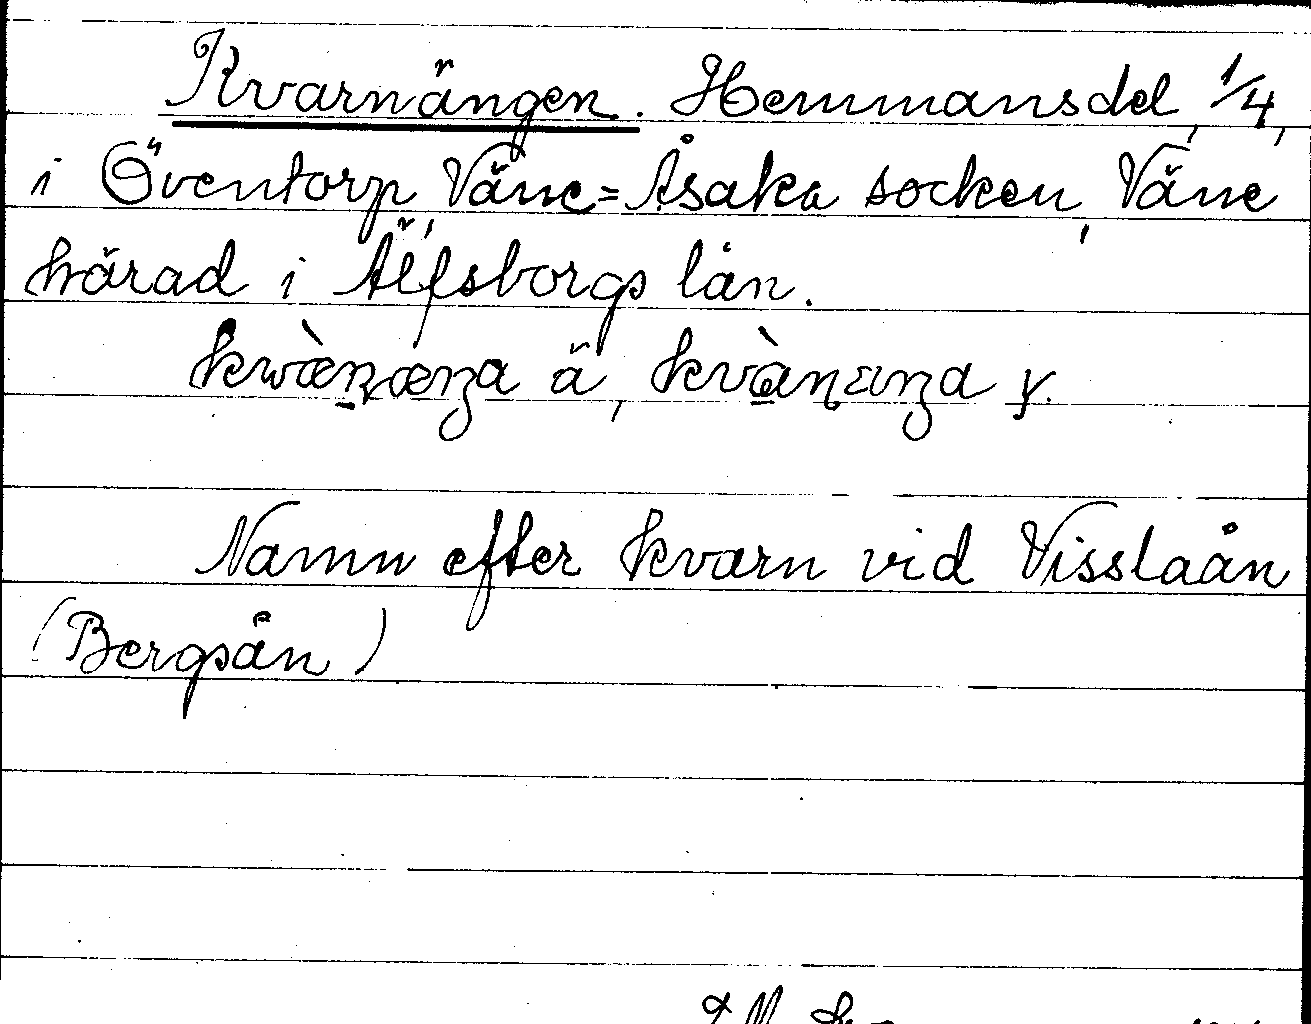 Kvarnängen. Hemmansdel, 1/4,
i Öventorp, Väne=Åsaka socken, Väne
härad i Älfsborgs län.
kwæ̀næŋa ä, kvànæŋa y.
Namn efter kvarn vid Visslaån
(Bergsån)